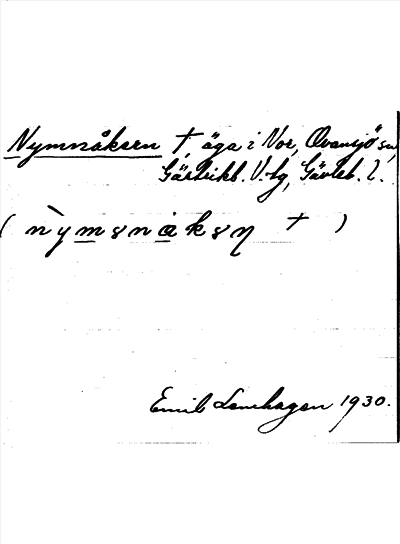 Nymnåksen †, äga i Nor, Ovansjö sn,
Gästrikl. V.tg, Gävleb. l.
( nỳmsnaksn † )
Emil Lenhagen 1930.